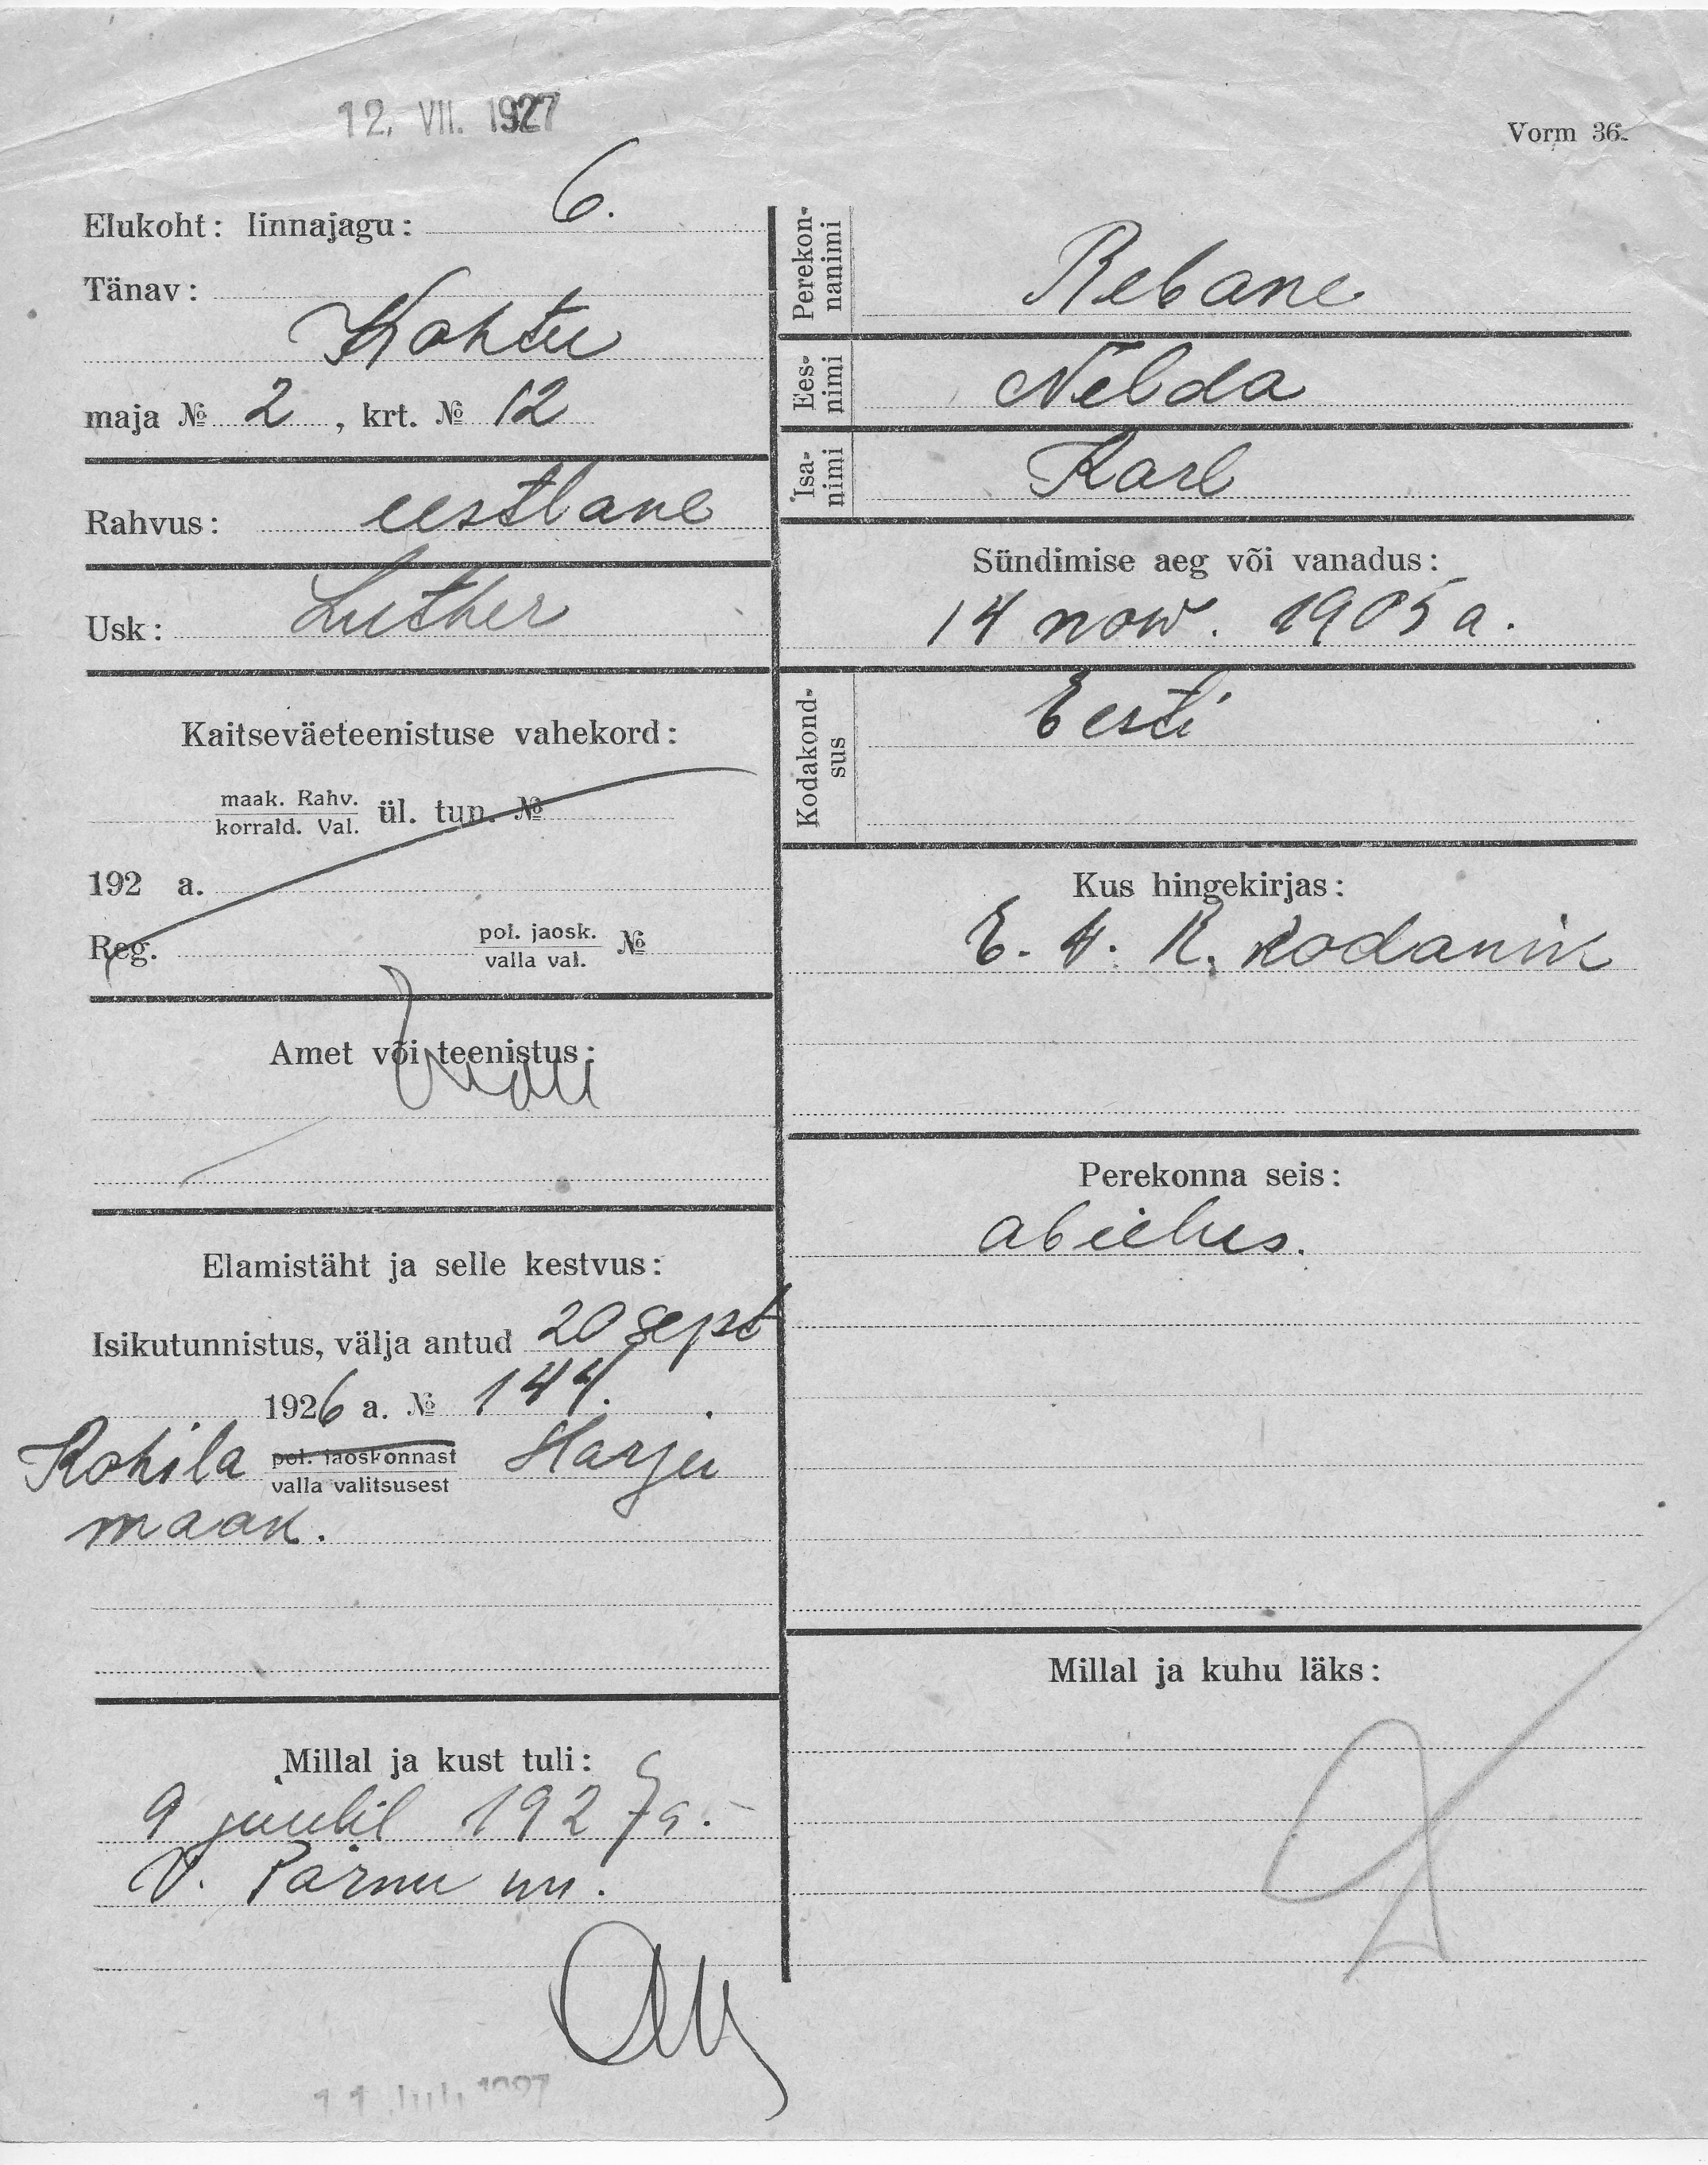 12. VII. 1927
Vorm 36.
Elukoht: linnajagu: 6.
Tänav:
Kohtu
maja № 2, krt. № 12
Rahvus: eestlane
Usk: Luther
Kaitseväeteenistuse vahekord:
maak. Rahv.
korrald. Val. ül. tun. №
192 a.
Reg. pol. jaosk.
valla val. №
Amet või teenistus:
Elamistäht ja selle kestvus:
Isikutunnistus, välja antud 20 sept
1926 a. № 144.
Kohila pol. jaoskonnast Harju
valla valitsusest
maak.
Millal ja kust tuli:
9 juulil 1927 a.
V. Pärnu
11 Juuli 1927
Perekonnanimi
Rebane
Eesnimi
Nelda
Isanimi
Karl
Sündimise aeg või vanadus:
14 now. 1905 a.
Kodakondsus
Eesti
Kus hingekirjas:
E. W. R. kodanik
Perekonna seis:
abielus.
Millal ja kuhu läks: